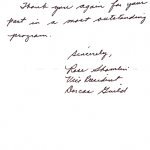 Thank you again for your
part in a most outstanding
program.
Sincerely,
Rose
Vice President
Dorcas Guild